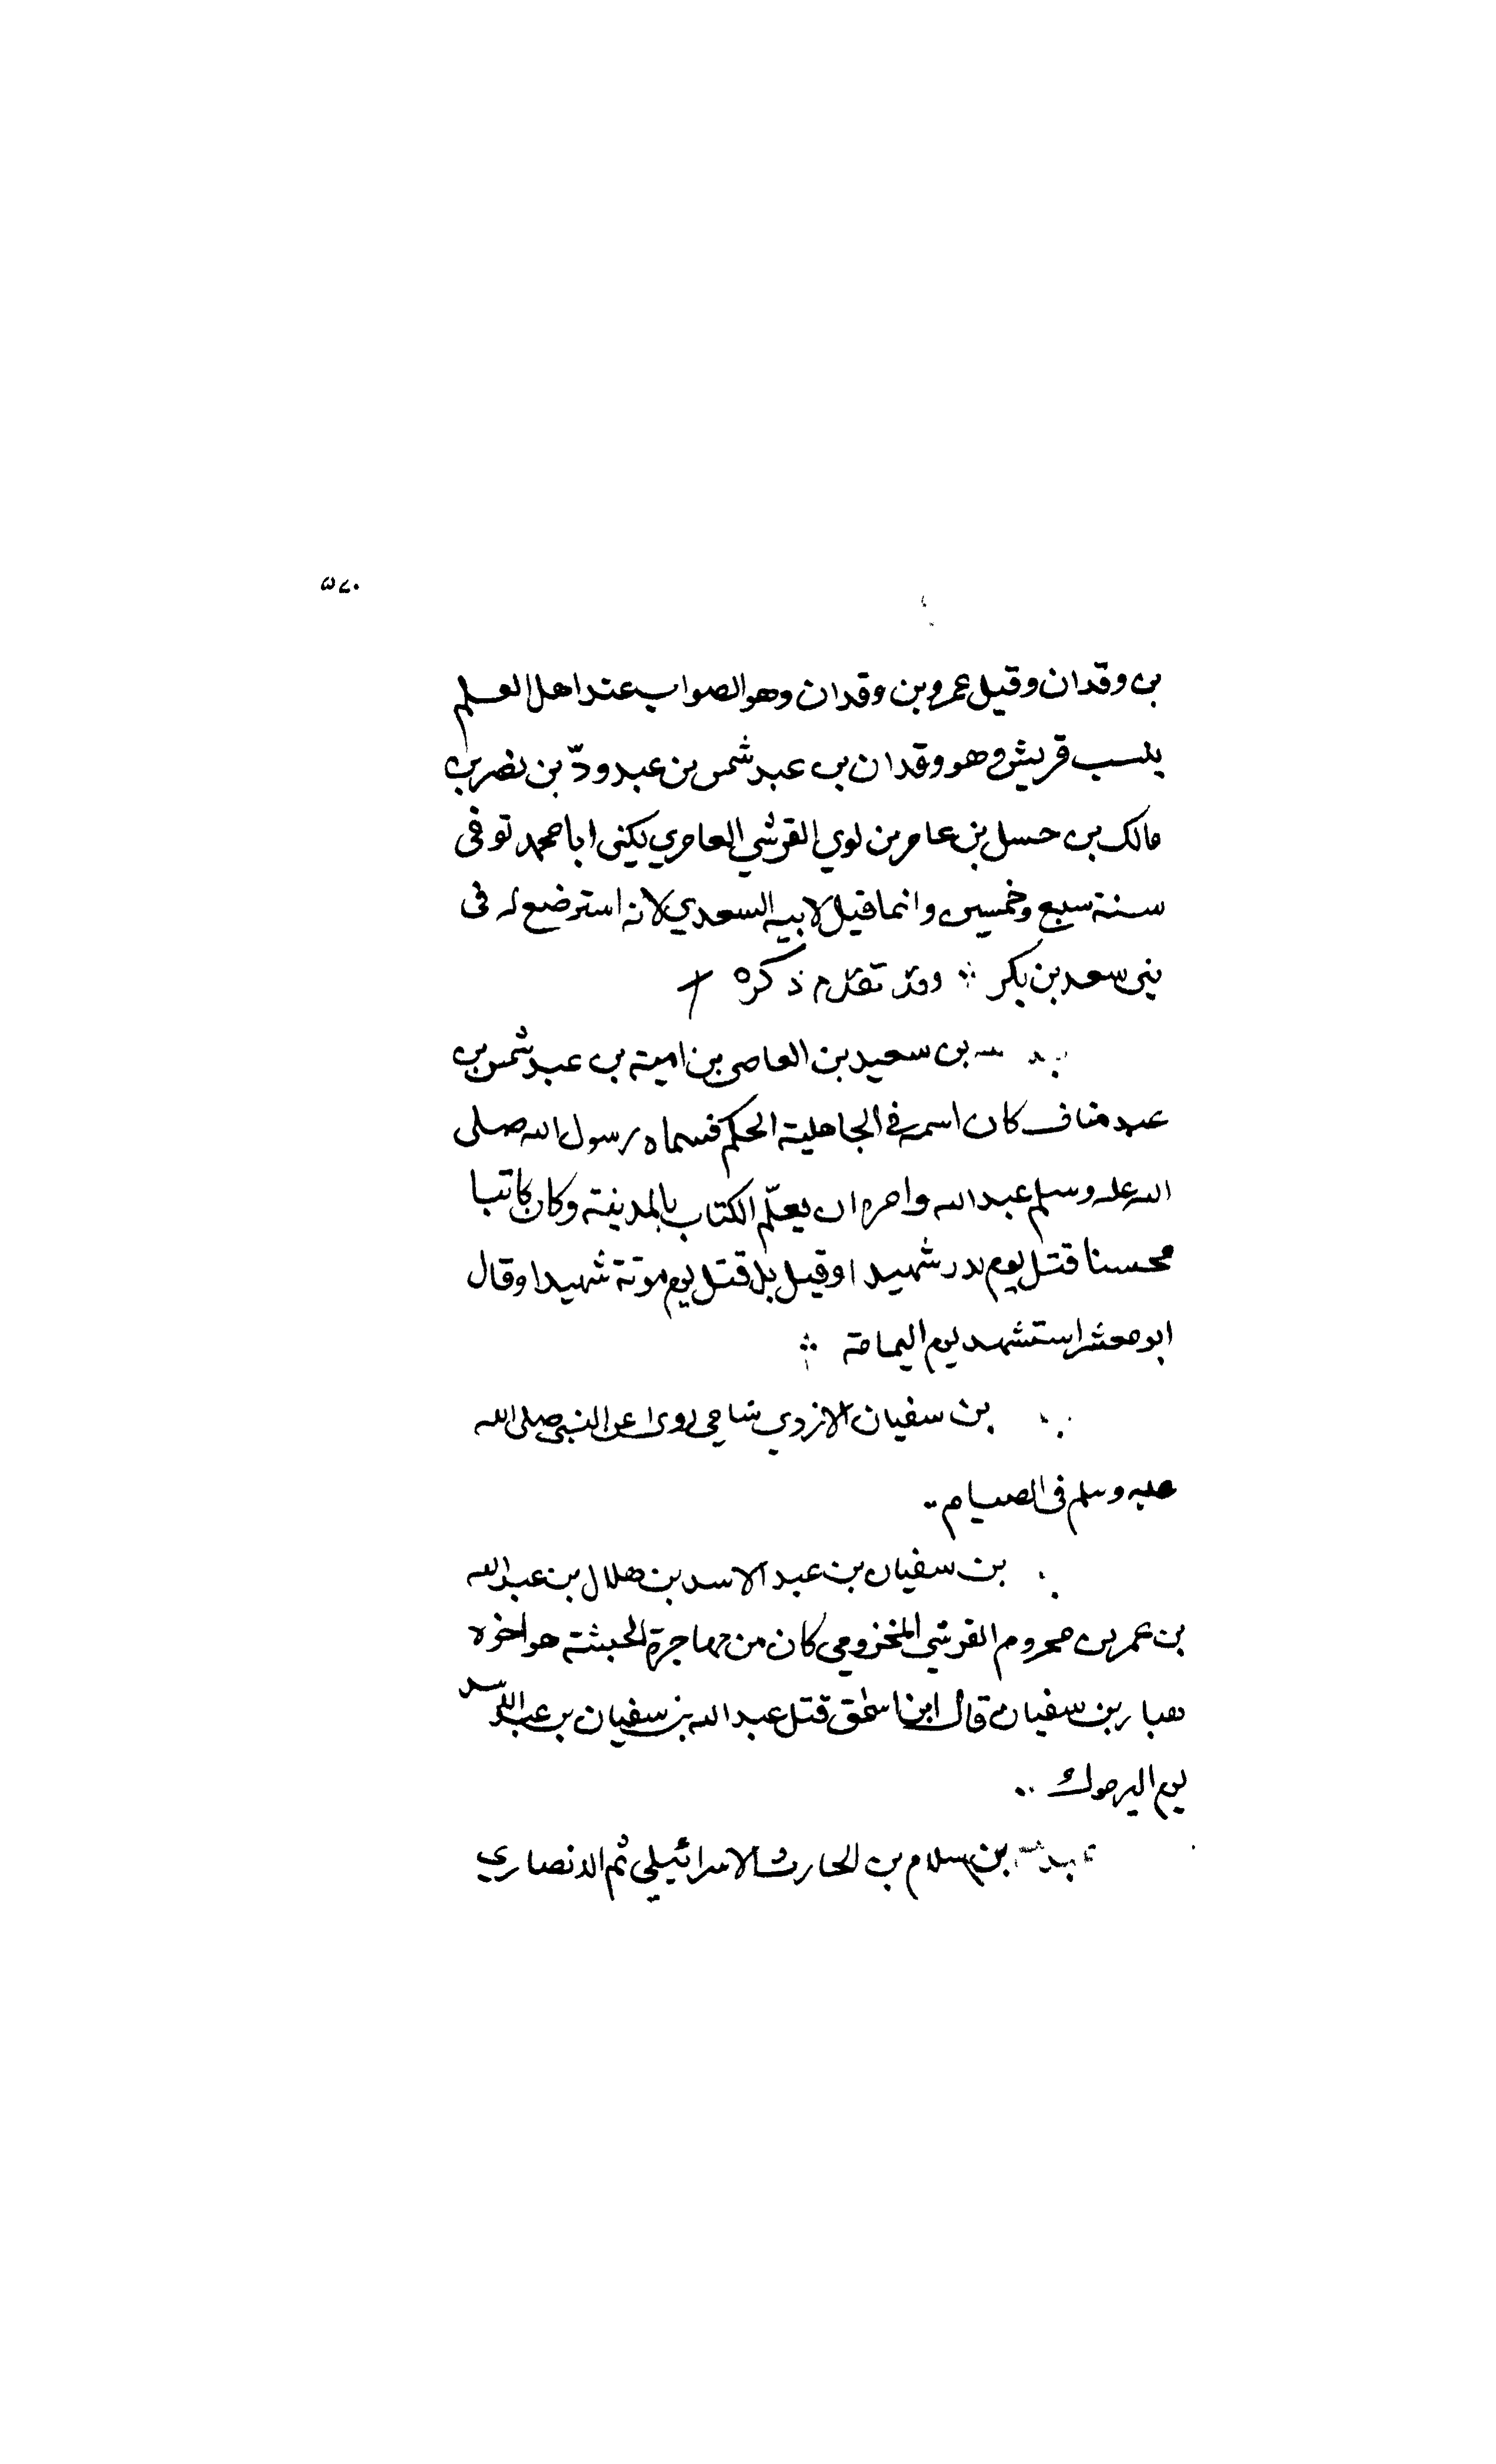 ٥٧٠
بن وقدان وقيل عمرو بن وقدان وهو الصواب عند اهل العلم
بنسب قريش وهو وقدان بن عبد شمس بن عبد ودّ بن نصر بن
مالك بن حسل بن عامر بن لوي القرشي العامري يكنى ابا محمد توفى
سنة سبع وخمسين وانما قيل لابيه السعدي لانه استرضع له فى
بنى سعد بن بكر ∴ وقد تقدم ذكره
بن سعيد بن العاصى بن امية بن عبد شمس بن
عبد مناف كان اسمه في الجاهلية الحكم فسماه رسول الله صلى
الله عليه وسلم عبد الله وامره ان يعلّم الكتاب بالمدينة وكان كاتبا
محسنا قتل يوم بدر شهيدا وقيل بل قتل يوم موتة شهيدا وقال
ابو معشر استشهد يوم اليمامة ∴
بن سفيان الازدي شامي روى عن النبى صلى الله
عليه وسلم فى الصيام
بن سفيان بن عبد الاسد بن هلال بن عبد الله
بن عمر بن مخزوم القرشي المخزومي كان من مهاجرة الحبشة هو اخوه
هبار بن سفيان قال ابن اسحق قتل عبد الله بن سفيان بن عبد الاسد
يوم اليرموك
عبد الله بن سلام بن الحارث الاسرائيلي ثم الانصاري